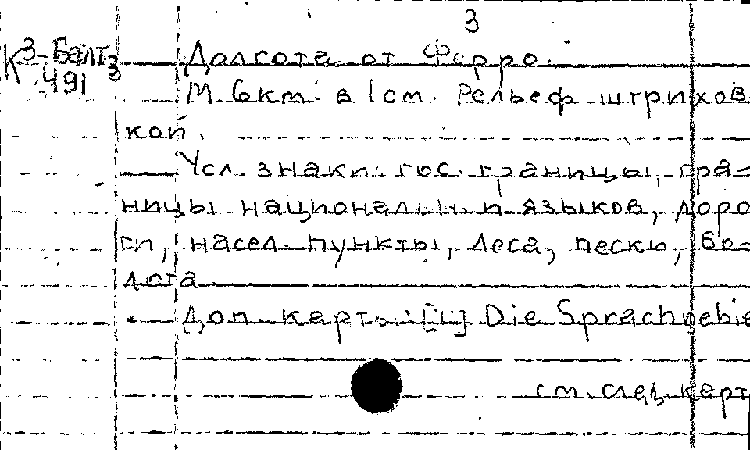 3
К 3-Балт
491 3
Долгота от Ферро.
М 6км в 1см. Рельеф штрихов
кой.
Усл. знаки: гос. границы, гра-
ницы национальн и языков, доро
ги, насел. пункты, леса, пески, бо-
лота
Доп. карты: [1] Die Sprachgebie
см. след. карт